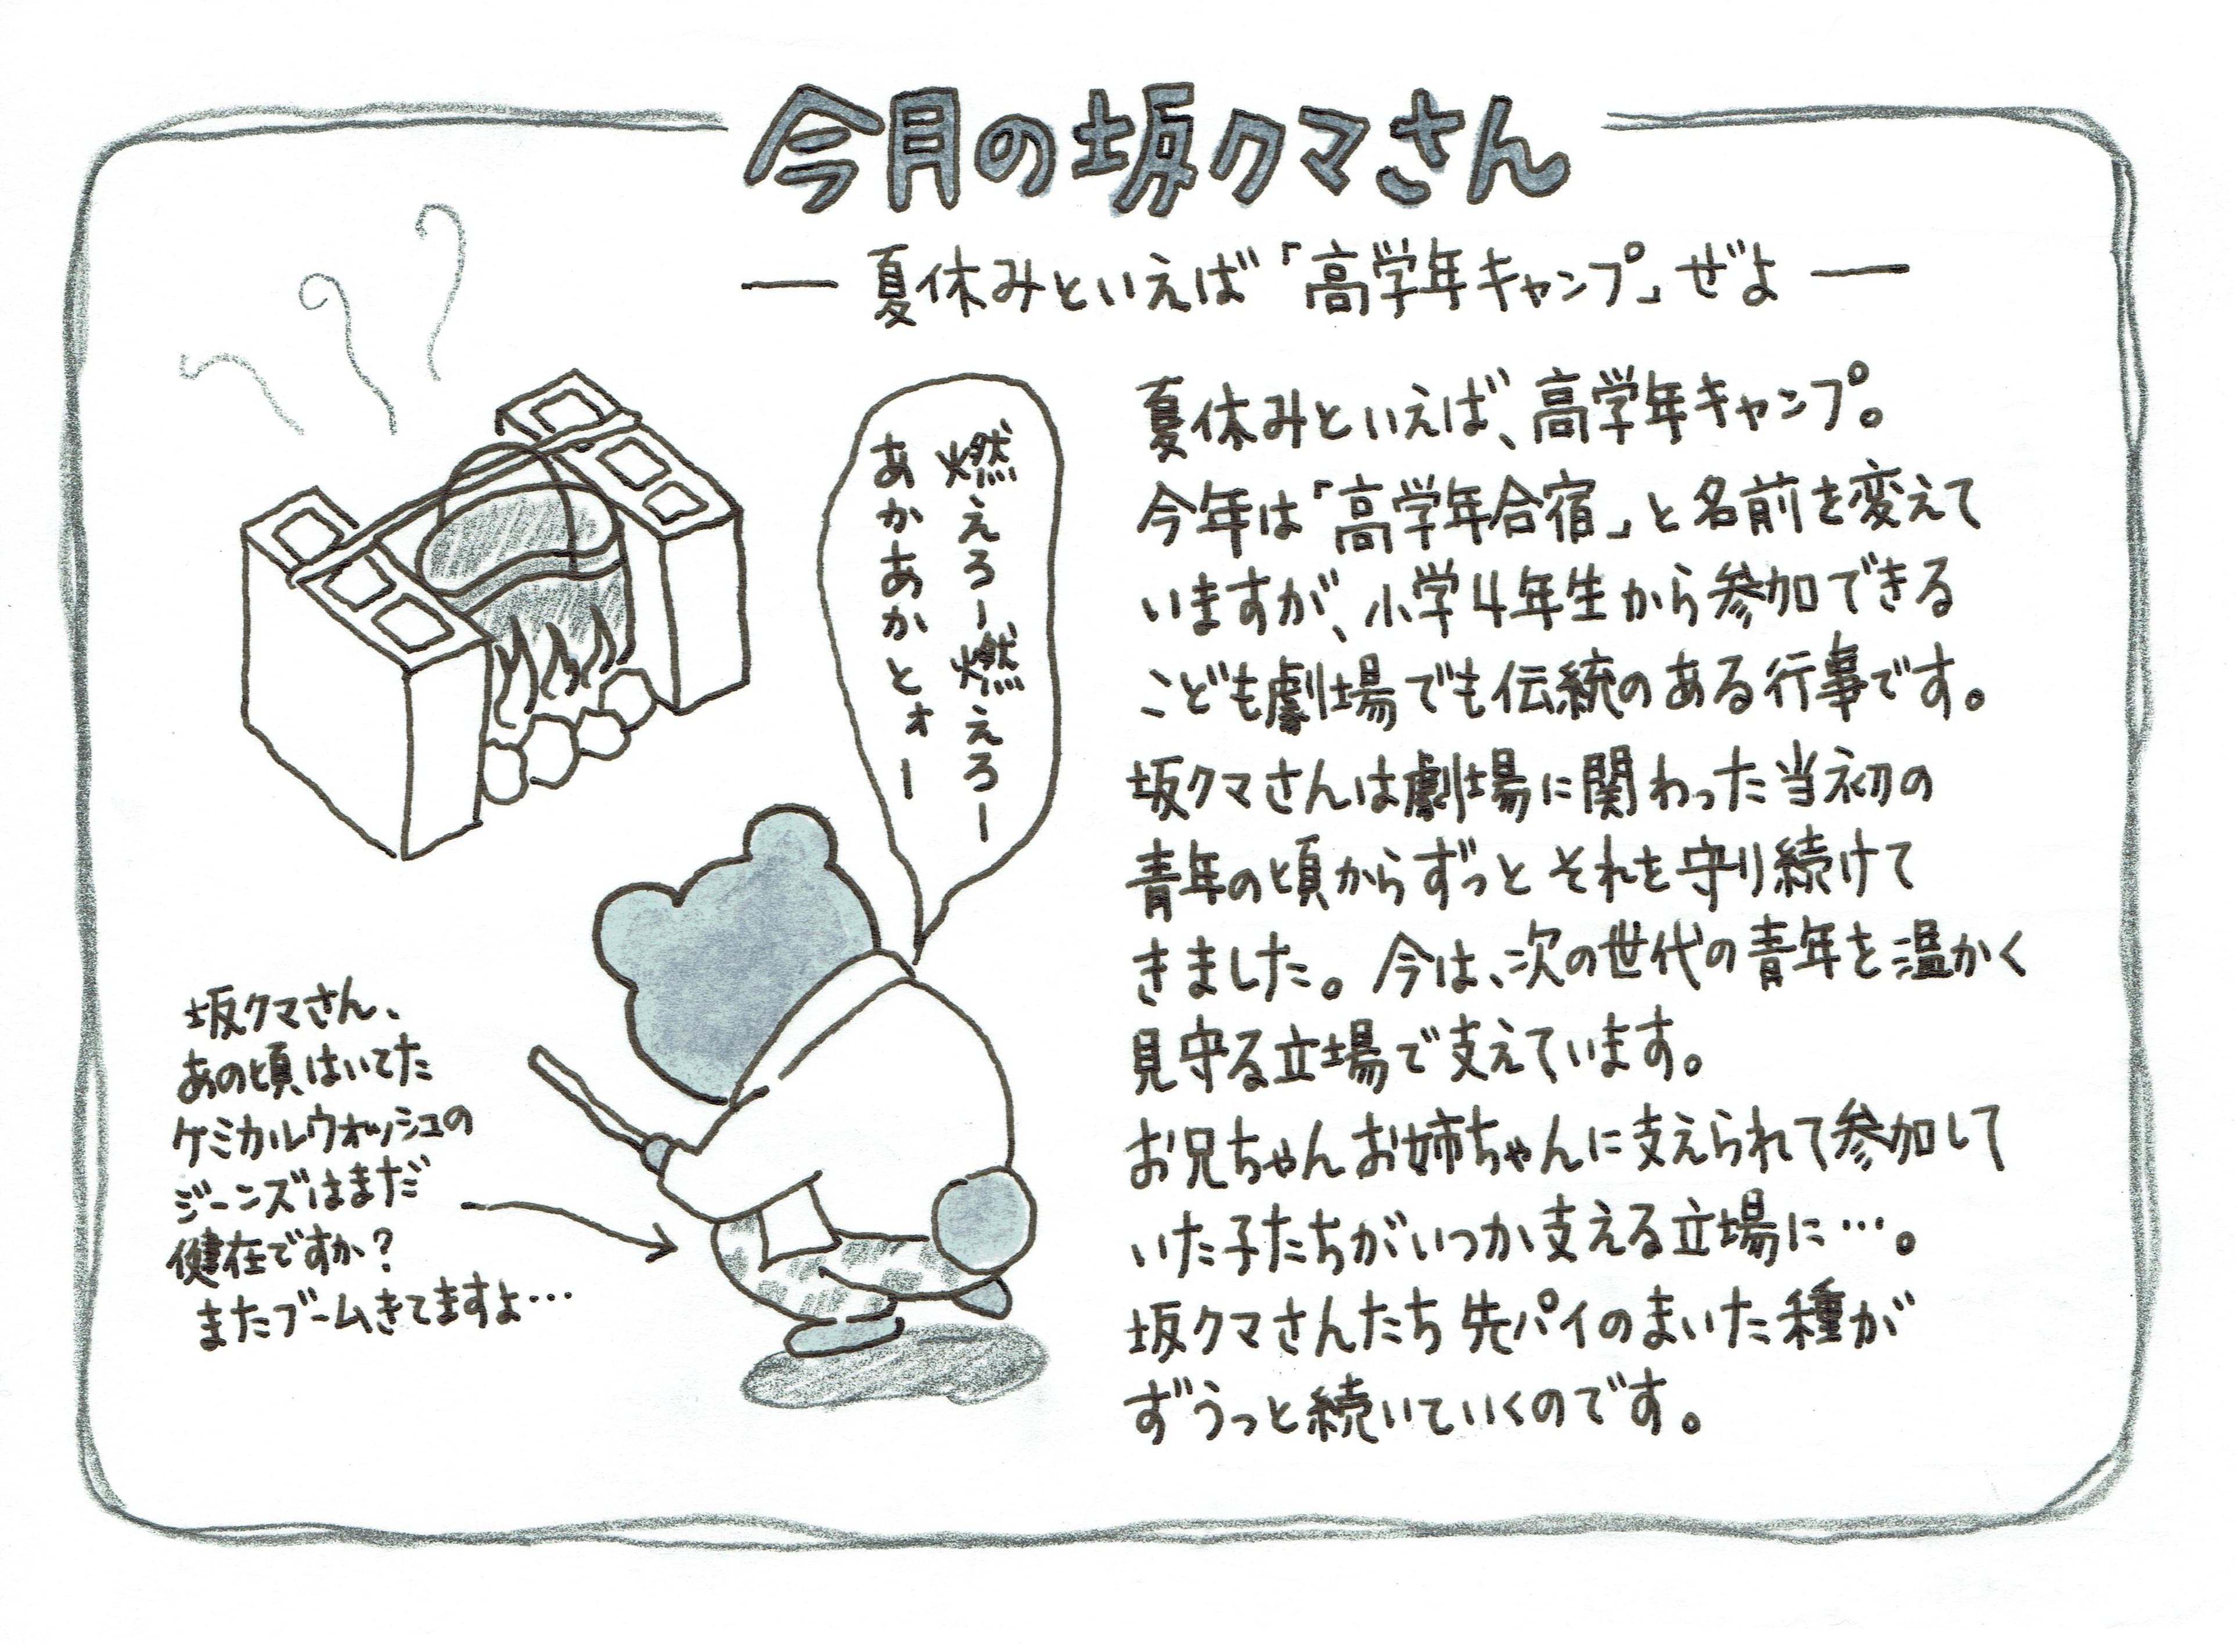 今月の坂クマさん
― 夏休みといえば「高学年キャンプ」ぜよ ―
燃えろー燃えろー
あかあかとォー
夏休みといえば、高学年キャンプ。
今年は「高学年合宿」と名前を変えて
いますが、小学4年生から参加できる
こども劇場でも伝統のある行事です。
坂クマさんは劇場に関わった当初の
青年の頃からずっとそれを守り続けて
きました。今は、次の世代の青年を温かく
見守る立場で支えています。
お兄ちゃんお姉ちゃんに支えられて参加して
いた子たちがいつか支える立場に…。
坂クマさんたち先パイのまいた種が
ずうっと続いていくのです。
坂クマさん、
あの頃はいてた
ケミカルウォッシュの
ジーンズはまだ
健在ですか?
またブームきてますよ…